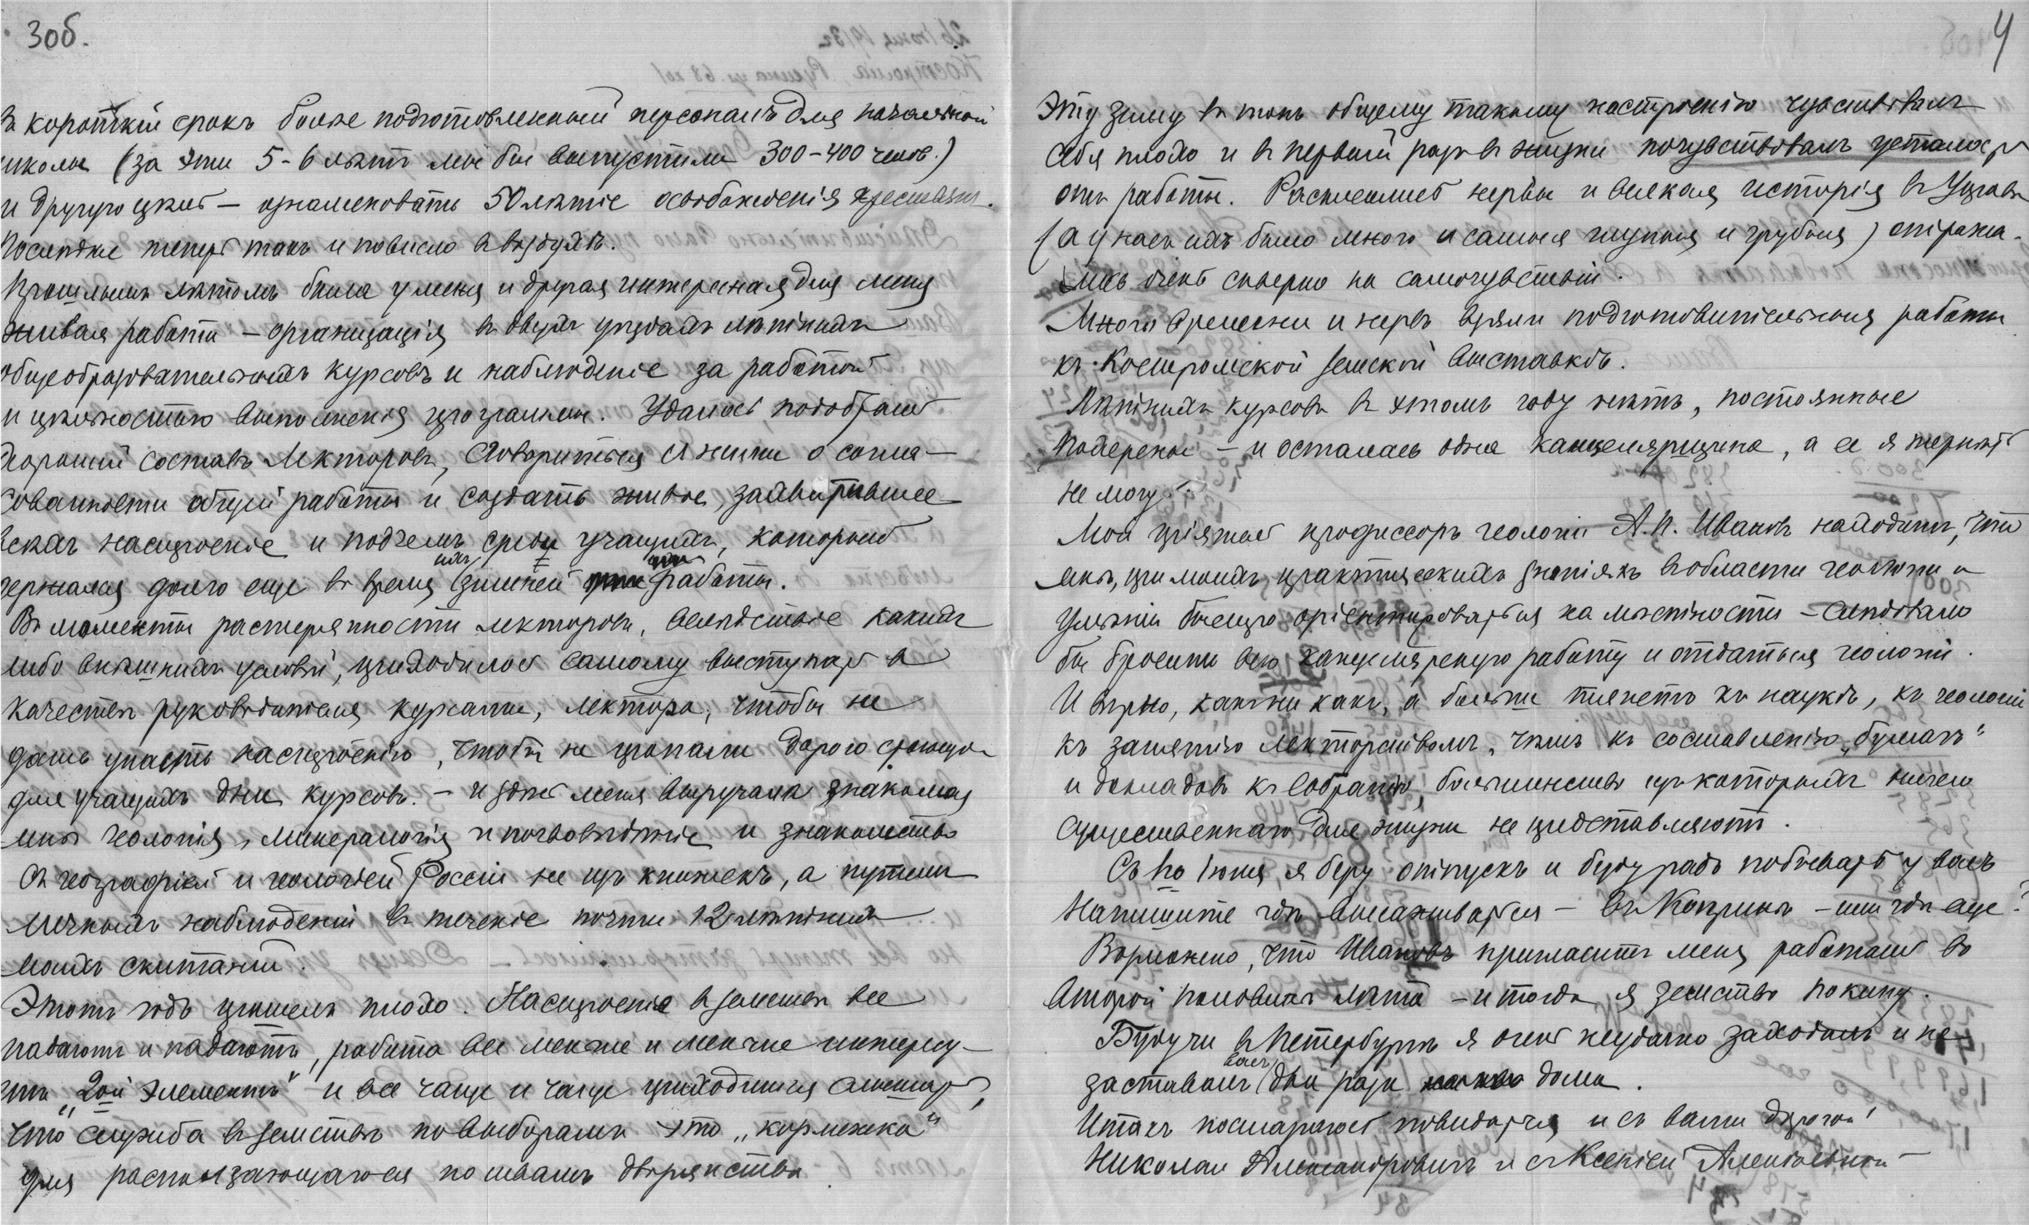 3об.
въ короткій срокъ болѣе подготовленный персоналъ для начальной
школы (за эти 5-6 лѣтъ мы бы выпустили 300-400 челов.)
и другую цѣль - ознаменовать 50лѣтіе освобожденія крестьян.
Послѣдне теперь такъ и повисло въ воздухѣ.
Прошлымъ лѣтомъ была у меня и другая интересная для меня
живая работа - организація въ двухъ уѣздахъ лѣтнихъ
общеобразовательныхъ курсовъ и наблюденіе за работой
и цѣльностью выполненія программы. Удалось подобрать
хорошій составъ лекторовъ, сговориться съ ними о согла-
сованности общей работы и создать живое, захватившее
всѣхъ настроеніе и подъемъ среди учащихъ, который
держался долго еще во время ихъ зимней работы.
Въ моменты растерянности лекторовъ, вслѣдствіе какихъ
либо внѣшнихъ условій, приходилось самому выступать въ
качествѣ руководителя курсами, лектора, чтобы не
дать упасть настроенію, чтобы не пропали дорого стоющіе
для учащихъ дни курсовъ. - и здѣсь меня выручала знакомая
мнѣ геологія, минералогія и почвовѣдѣніе и знакомство
съ географіей и геологіей Россіи не изъ книжекъ, а путемъ
личныхъ наблюденій въ теченіе почти 12 лѣтнихъ
моихъ скитаній.
Этотъ годъ прошелъ плохо. Настроенія въ земствѣ все
падаютъ и падаютъ, работа все меньше и меньше интересу-
етъ "2ой элементъ" и все чаще и чаще приходится слышать,
что служба въ земствѣ по выборамъ это "кормежка"
для расползающагося по швамъ дворянства.
4
Эту зиму въ тонъ общему такому настроенію чувствовалъ
себя плохо и въ первый разъ въ жизни почувствовалъ усталость
отъ работы. Расклеились нервы и всякая исторія въ Управѣ
(а у насъ ихъ было много и самыя глупыя и грубыя) отража-
лись очень скверно на самочувствіи.
Много времени и нервъ взяли подготовительныя работы
къ Костромской земской выставкѣ.
Лѣтнихъ курсовъ въ этомъ году нѣтъ, постоянные
похерены - и осталась одна канцелярщина, а ее я терпѣть
не могу.
Мой пріятель профессоръ геологіи А.П. Ивановъ находитъ, что
мнѣ, при моихъ практическихъ знаніяхъ въ области геологіи и
умѣніи быстро оріентироваться на мѣстности - слѣдовало
бы бросить всю канцелярскую работу и отдаться геологіи.
И вѣрно, какъ ни какъ, а больше тянетъ къ наукѣ, къ геологіи
къ занятію лекторствомъ, чѣмъ къ составленію "бумагъ"
и докладовъ къ Собранію, большинство изъ которыхъ ничего
существеннаго для жизни не представляютъ.
Съ Іюня я беру отпускъ и буду радъ побывать у васъ
Напишите гдѣ высаживаться - въ Кокринѣ - или гдѣ еще?
Возможно, что Ивановъ пригласитъ меня работать во
второй половинѣ лѣта - и тогда я земство покину.
Будучи въ Петербургѣ я очень неудачно заходилъ и не
заставалъ васъ два раза дома.
Итакъ постараюсь повидаться и съ вами дорогой
Николай Александровичъ и съ Ксеніей Алексѣевной -